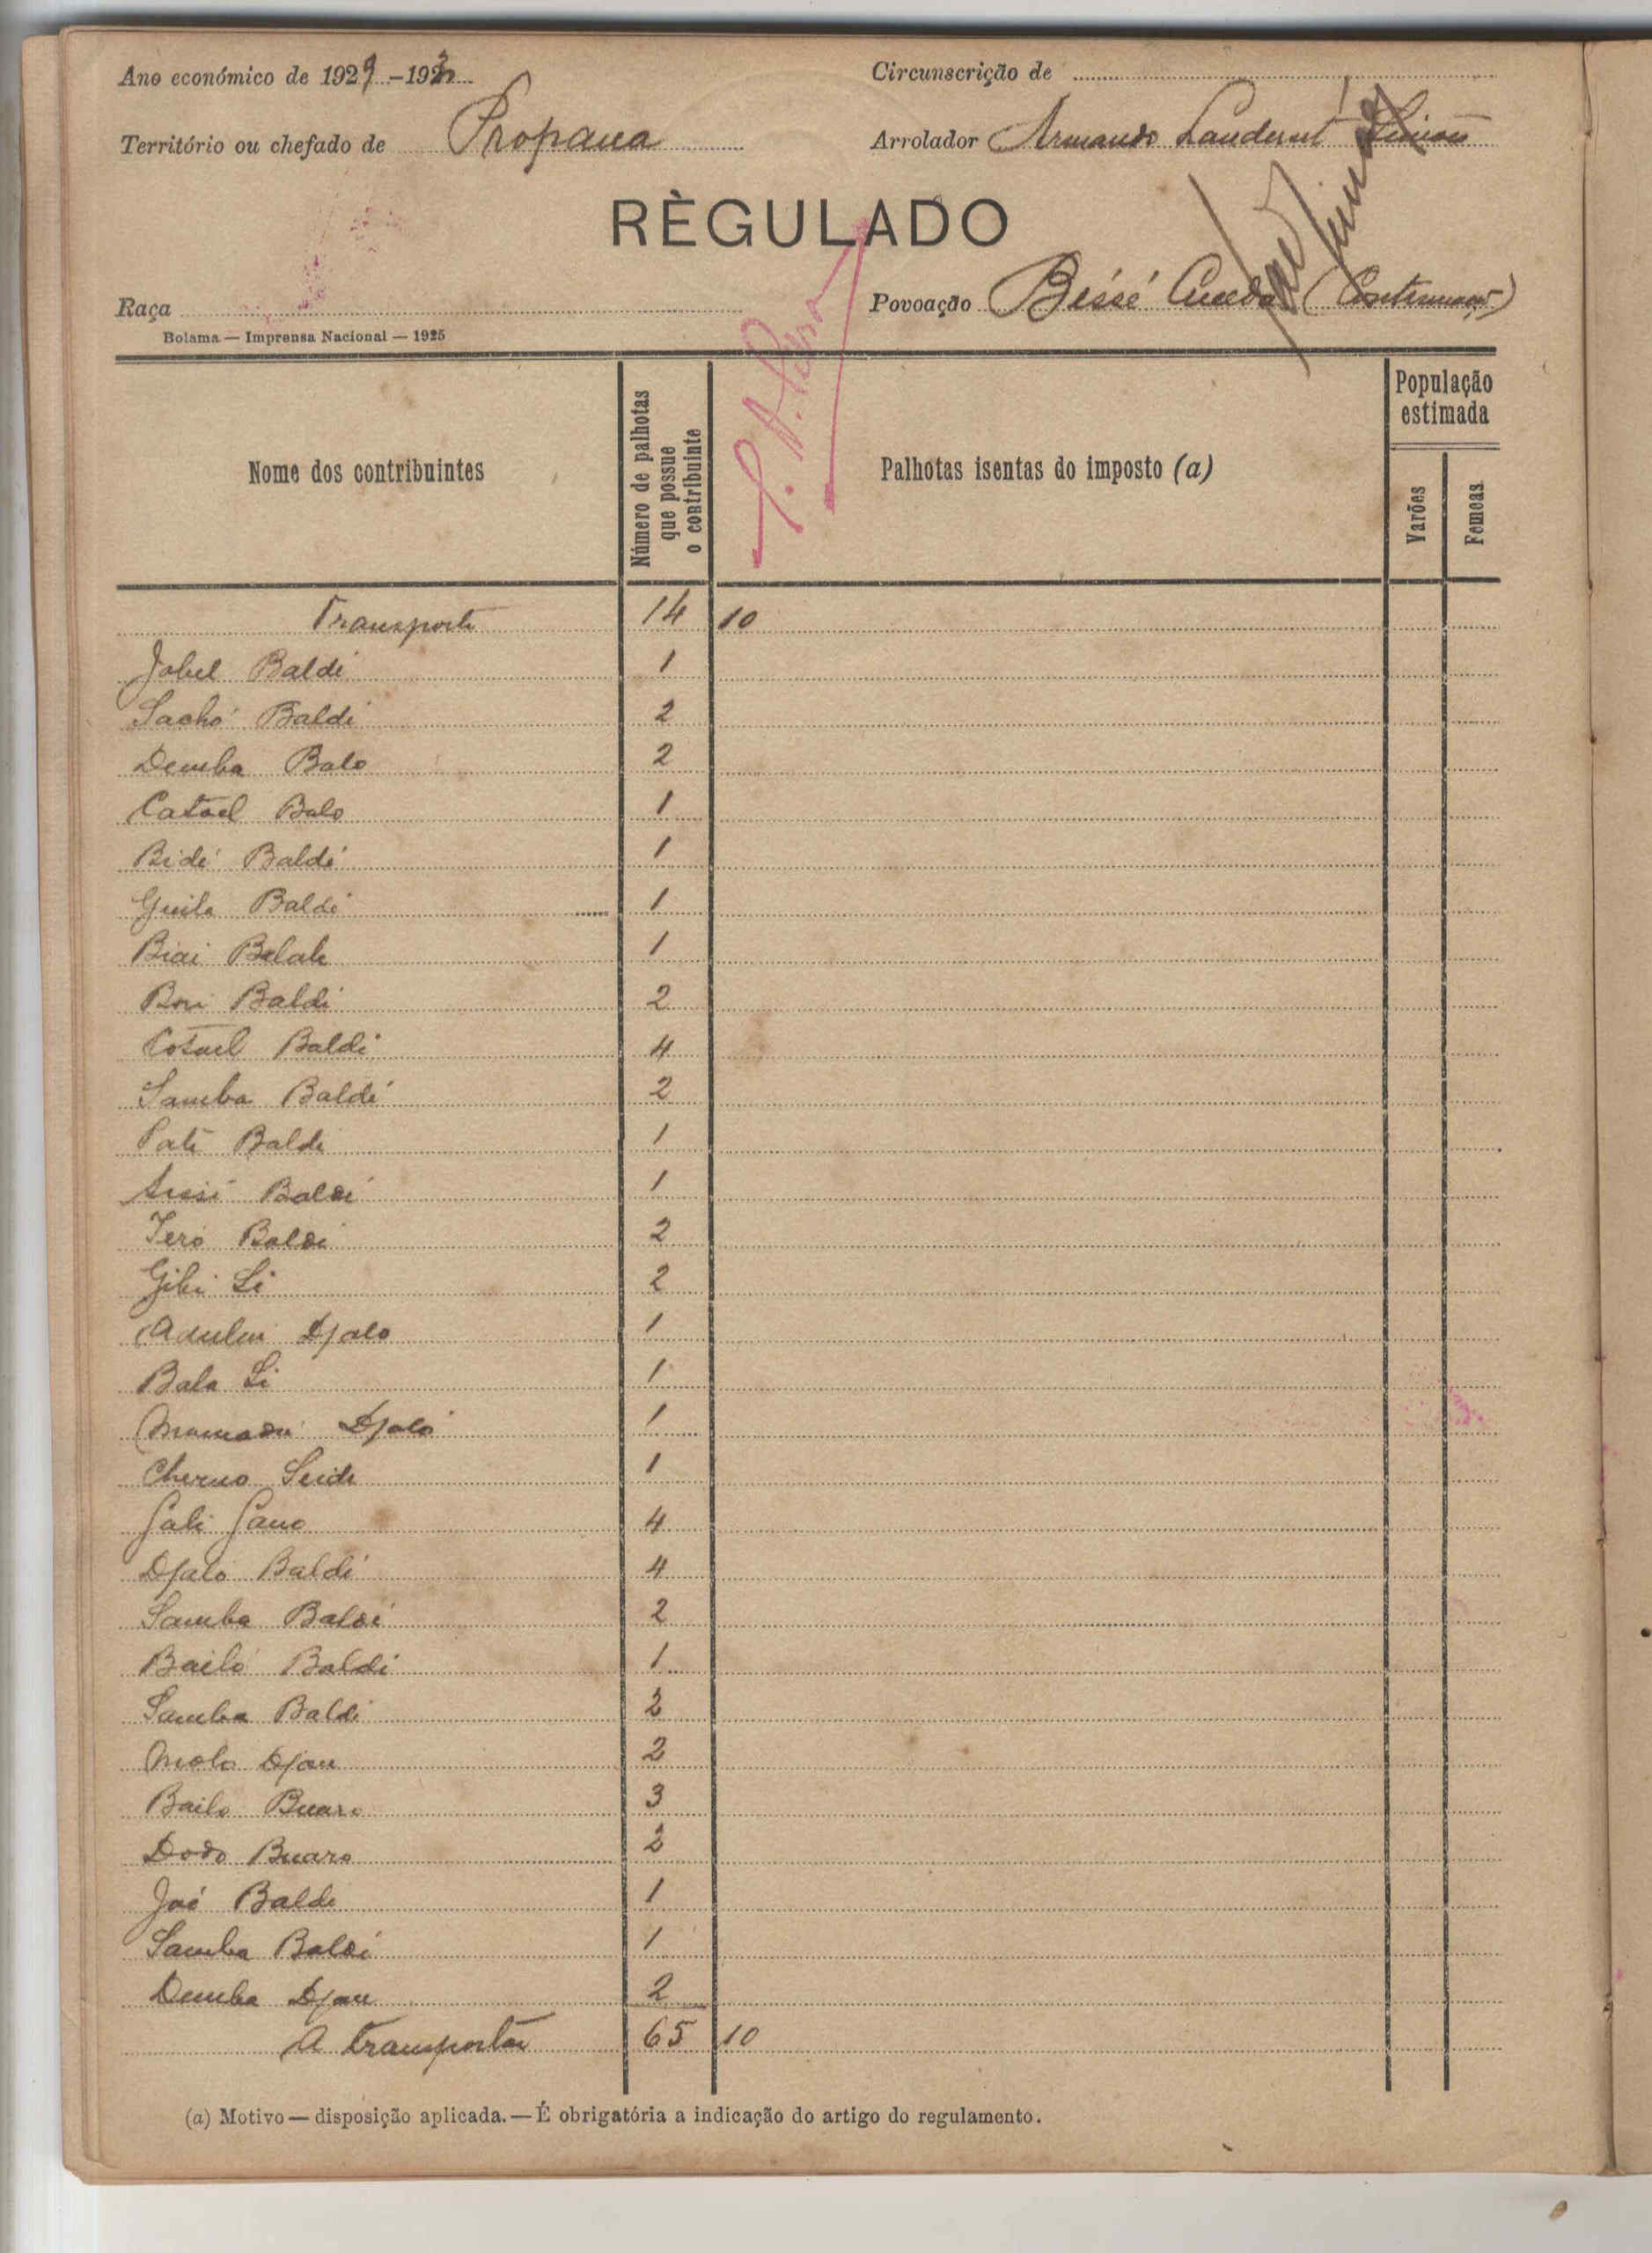 Ano económico de 1929-193
Circunscrição de
Território ou chefado de Propana
Arrolador Armando
RÈGULADO
Raça
Povoação Béssé
Bolama — Imprensa Nacional — 1925
Nome dos contribuintes
Número de palhotas que possue o contribuinte
Palhotas isentas do imposto (a)
População estimada
Varões
Femeas
Transporte 14 10
Jobel Baldé 1
Sachó Baldé 2
Demba Balo 2
Catael Balo 1
Bidé Baldé 1
Guila Baldé 1
Biai 1
Bori Baldé 2
Cotael Baldé 4
Samba Baldé 2
Paté Baldé 1
Baldé 1
Iero Baldé 2
Gibi Li 2
Djalo 1
Bala Li 1
Mamadu Djaló 1
Cherno Seide 1
Gali Gano 4
Djaló Baldé 4
Samba Baldé 2
Bailó Baldé 1
Samba Baldé 2
Molo Djau 2
Bailo Buaro 3
Dodo Buaro 2
Joé Balde 1
Samba Baldé 1
Demba Djau 2
A transportar 65 10
(a) Motivo — disposição aplicada. — É obrigatória a indicação do artigo do regulamento.